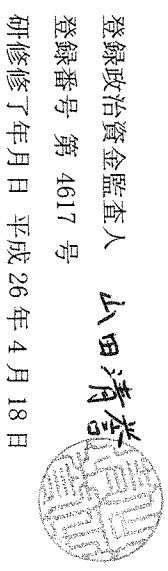 登録政治資金監査人 山田清誉
登録番号 第 4617 号
研修修了年月日 平成 26 年 4 月 18 日